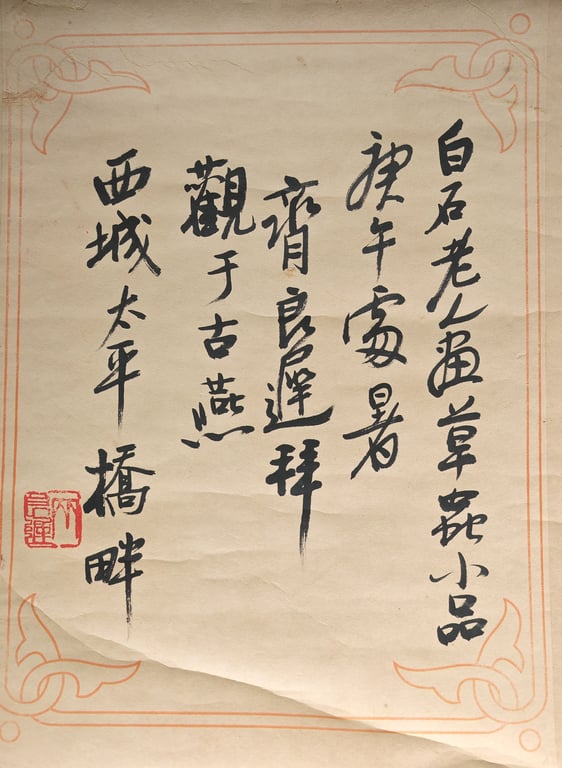 白石老人畫草蟲小品
庚午處暑
齊良遲拜
觀于古燕
西城太平橋畔
齊良遲